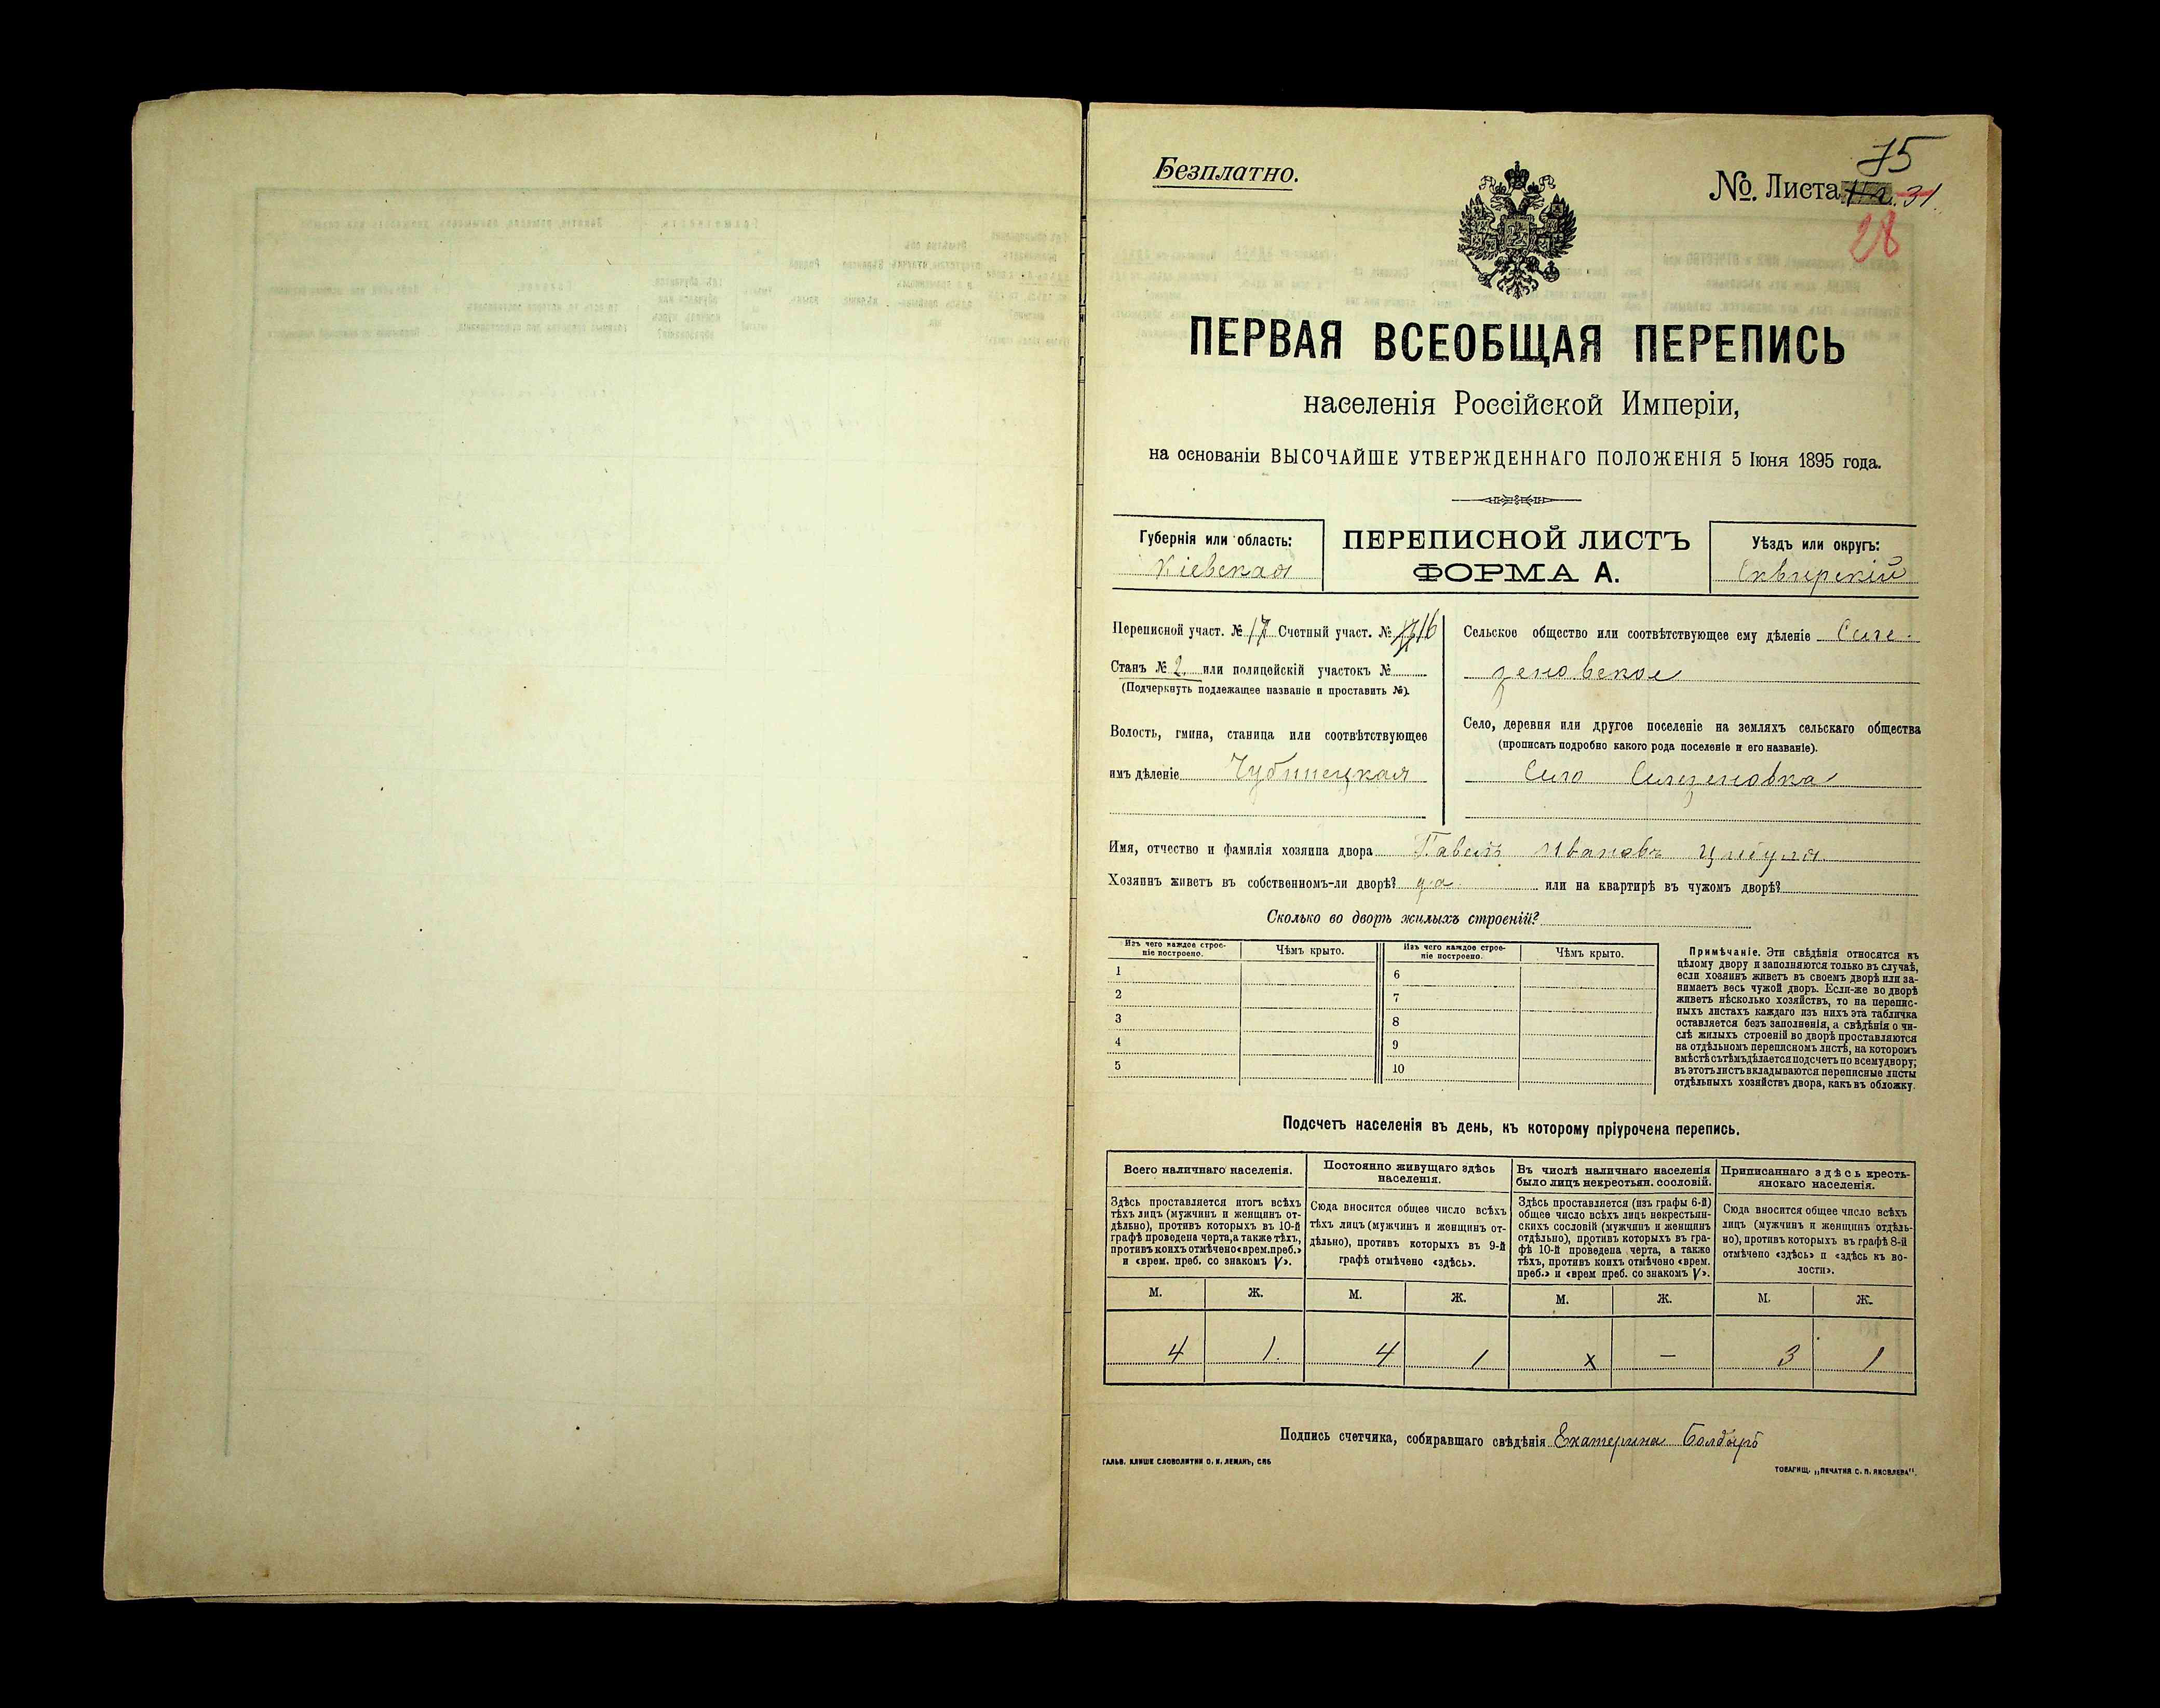 Безплатно.
№. Листа 31.
75
28
ПЕРВАЯ ВСЕОБЩАЯ ПЕРЕПИСЬ
населенія Россійской Имперіи,
на основаніи ВЫСОЧАЙШЕ УТВЕРЖДЕННАГО ПОЛОЖЕНІЯ 5 Іюня 1895 года.
Губернія или область:
Кіевская
ПЕРЕПИСНОЙ ЛИСТЪ
ФОРМА А.
Уѣздъ или округъ:
Сквирскій
Переписной участ. № 17 Счетный участ. № 16
Станъ № 2. или полицейскій участокъ №
(Подчеркнуть подлежащее названіе и проставить №).
Волость, гмина, станица или соотвѣтствующее
имъ дѣленіе Чубинецкая
Сельское общество или соотвѣтствующее ему дѣленіе Селе-
зеновское
Село, деревня или другое поселеніе на земляхъ сельскаго общества
(прописать подробно какого рода поселеніе и его названіе).
Село Селезеновка
Имя, отчество и фамилія хозяина двора Павелъ Ивановъ Цибуля
Хозяинъ живетъ въ собственномъ-ли дворѣ? да. или на квартирѣ въ чужомъ дворѣ?
Сколько во дворѣ жилыхъ строеній?
Изъ чего каждое строе-
ніе построено.
Чѣмъ крыто.
Изъ чего каждое строе-
ніе построено.
Чѣмъ крыто.
1 6
2 7
3 8
4 9
5 10
Примѣчаніе. Эти свѣдѣнія относятся къ
цѣлому двору и заполняются только въ случаѣ,
если хозяинъ живетъ въ своемъ дворѣ или за-
нимаетъ весь чужой дворъ. Если-же во дворѣ
живетъ нѣсколько хозяйствъ, то на перепис-
ныхъ листахъ каждаго изъ нихъ эта табличка
оставляется безъ заполненія, а свѣдѣнія о чи-
слѣ жилыхъ строеній во дворѣ проставляются
на отдѣльномъ переписномъ листѣ, на которомъ
вмѣстѣ съ тѣмъ дѣлается подсчетъ по всему двору;
въ этотъ листъ вкладываются переписные листы
отдѣльныхъ хозяйствъ двора, какъ въ обложку.
Подсчетъ населенія въ день, къ которому пріурочена перепись.
Всего наличнаго населенія.
Здѣсь проставляется итогъ всѣхъ
тѣхъ лицъ (мужчинъ и женщинъ от-
дѣльно), противъ которыхъ въ 10-й
графѣ проведена черта, а также тѣхъ,
противъ коихъ отмѣчено «врем. преб.»
и «врем. преб. со знакомъ V».
Постоянно живущаго здѣсь
населенія.
Сюда вносится общее число всѣхъ
тѣхъ лицъ (мужчинъ и женщинъ от-
дѣльно), противъ которыхъ въ 9-й
графѣ отмѣчено «здѣсь».
Въ числѣ наличнаго населенія
было лицъ некрестьян. сословій.
Здѣсь проставляется (изъ графы 6-й)
общее число всѣхъ лицъ некрестьян-
скихъ сословій (мужчинъ и женщинъ
отдѣльно), противъ которыхъ въ гра-
фѣ 10-й проведена черта, а также
тѣхъ, противъ коихъ отмѣчено «врем.
преб.» и «врем преб. со знакомъ V».
Приписаннаго здѣсь кресть-
янскаго населенія.
Сюда вносится общее число всѣхъ
лицъ (мужчинъ и женщинъ отдѣль-
но), противъ которыхъ въ графѣ 8-й
отмѣчено «здѣсь» и «здѣсь къ во-
лости».
М. Ж. М. Ж. М. Ж. М. Ж.
4 1. 4 1 х — 3 1
Подпись счетчика, собиравшаго свѣдѣнія Екатерина Болдырѣ
ГАЛЬВ. КЛИШЕ СЛОВОЛИТНИ О. И. ЛЕМАНЪ, СПБ
ТОВАРИЩ. „ПЕЧАТНЯ С. П. ЯКОВЛЕВА".